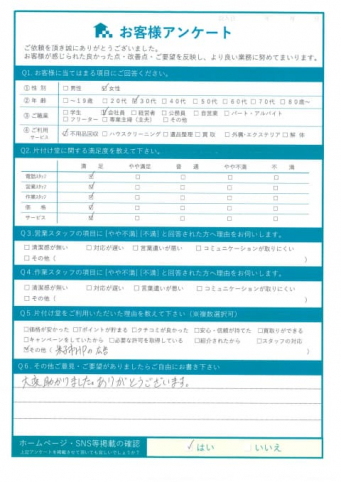 お客様アンケート
ご依頼を頂き誠にありがとうございました。
お客様が感じられた良かった点・改善点・ご要望を反映し、より良い業務に努めてまいります。
Q1. お客様に当てはまる項目にご回答ください。
① 性 別 □男性 ☑女性
② 年 齢 □～19歳 □20代 ☑30代 □40代 □50代 □60代 □70代 □80歳～
③ ご職業 □学生 ☑会社員 □経営者 □公務員 □自営業 □パート・アルバイト
□フリーター □専業主婦(主夫) □その他
④ ご利用サービス ☑不用品回収 □ハウスクリーニング □遺品整理 □買取 □外構・エクステリア □解体
Q2. 片付け堂に関する満足度を教えて下さい。
満 足 やや満足 普 通 やや不満 不 満
電話スタッフ ☑ □ □ □ □
営業スタッフ ☑ □ □ □ □
作業スタッフ ☑ □ □ □ □
価 格 ☑ □ □ □ □
サービス ☑ □ □ □ □
Q3. 営業スタッフの項目に[やや不満][不満]と回答された方へ理由をお伺いします。
□清潔感が無い □対応が遅い □言葉遣いが悪い □コミュニケーションが取りにくい
□その他( )
Q4. 作業スタッフの項目に[やや不満][不満]と回答された方へ理由をお伺いします。
□清潔感が無い □対応が遅い □言葉遣いが悪い □コミュニケーションが取りにくい
□その他( )
Q5. 片付け堂をご利用いただいた理由を教えて下さい(※複数選択可)
□価格が安かった □Tポイントが貯まる □クチコミが良かった □安心・信頼が持てた □買取りができる
□キャンペーンをしていたから □必要な許可を取得している □紹介されたから □スタッフの対応
☑その他( 米子市HPの広告 )
Q6. その他ご意見・ご要望がありましたらご自由にお書き下さい
大変助かりました。ありがとうございます。
ホームページ・SNS等掲載の確認
上記アンケートを掲載させて頂いても宜しいでしょうか?
✓はい / いいえ